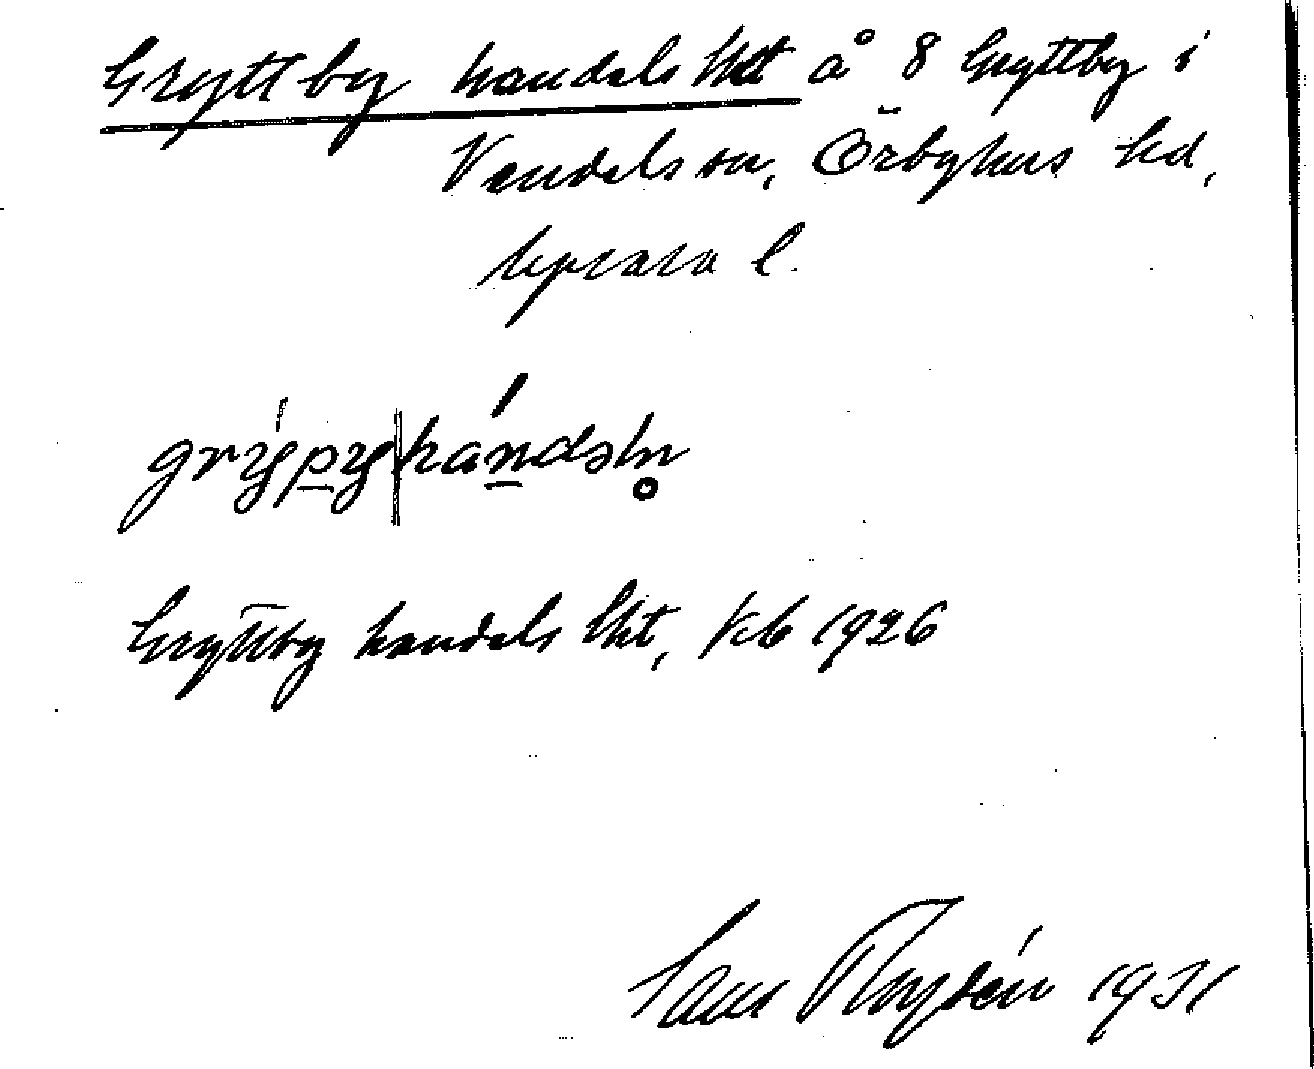 Gryttby handels lht å 8 Gryttby i
Vendels sn, Örbyhus hd,
Uppsala l.
grýpy|hándəln̥
Gryttby handels lht, kb 1926
Rydén 1931